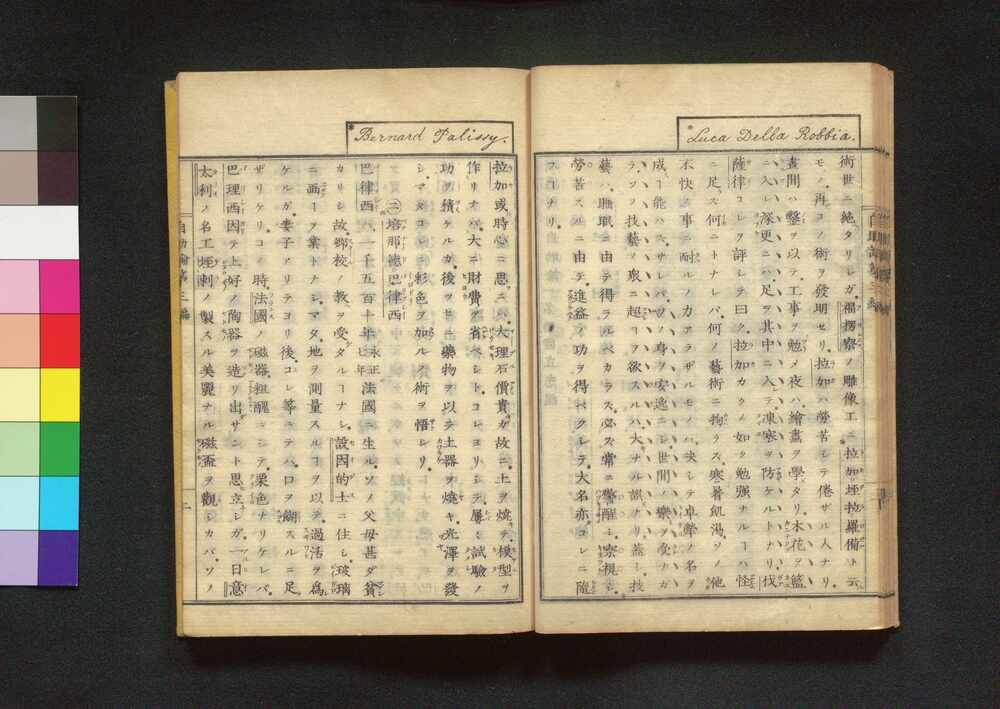 Luca Della Robbia.
術世ニ絶タリシガ。福楞察ノ雕像工ニ拉加垤拉羅備ト云
モノ。再コノ術ヲ發明セリ。拉加ハ勞苦シテ倦ザル人ナリ。
晝間ハ鑿ヲ以テ工事ヲ勉メ夜ハ繪畫ヲ學ビタリ。木花ヲ籃
ニ入レ。深更ニハ足ヲ其中ニ入テ。凍寒ヲ防ケルトナリ。伐
薩律コレヲ評シテ曰ク。拉加カクノ如ク勉強ナルヿハ怪
ニ足ズ。何ニトナレバ何ノ藝術ニ拘ラズ。寒暑飢渇ソノ他
不快ノ事ニ耐ルノ力アラザルモノハ決シテ卓犖ノ名ヲ
成ヿ能ハズ。サレバソノ身ヲ安逸ニシ世間ノ樂ヲ受ナガ
ラソノ技藝ノ衆ニ超ヿヲ欲スルハ大ナル誤ナリ。蓋シ技
藝ハ睡眠ニ由テ得ラルベカラズ。必ズ常ニ警醒シ。察視シ。
勞苦スルニ由テ。進益ノ功ヲ得ベクシテ。大名亦コレニ隨
フモノナリ。
Bernard Palissy.
拉加或時心ニ思ニハ。大理石價貴ガ故ニ。土ヲ燒テ模型ヲ
作リナバ。大ニ財費ヲ省ベシト。コレヨリシテ屢シ試驗ノ
功ヲ積ケルガ。後ヲヒニ藥物ヲ以テ土器ヲ燒キ。光澤ヲ發
シ。マタコレニ彩色ヲ加ルノ術ヲ悟レリ。
㊂培那德巴律西
巴律西ハ一千五百十年永正七年法國ニ生ル。ソノ父母甚ダ貧
カリシ故。鄕校ノ教ヲ受タルヿナシ。設因的士ニ住シ。玻璃
ニ画ヿヲ業トナシ。マタ地ヲ測量スルヿヲ以テ。過活ヲ爲
ケルガ。妻子アリテヨリ後。コレ等ニテハ口ヲ餬スルニ足
ザリケリ。コノ時。法國ノ磁器粗醜ニシテ。栗色ナリケレバ。
巴理西因テ上好ノ陶器ヲ造リ出サント思立シガ。一日意
太利ノ名工垤刺ノ製スル美麗ナル磁盃ヲ觀シカバ。ソノ
自助論第三編
二